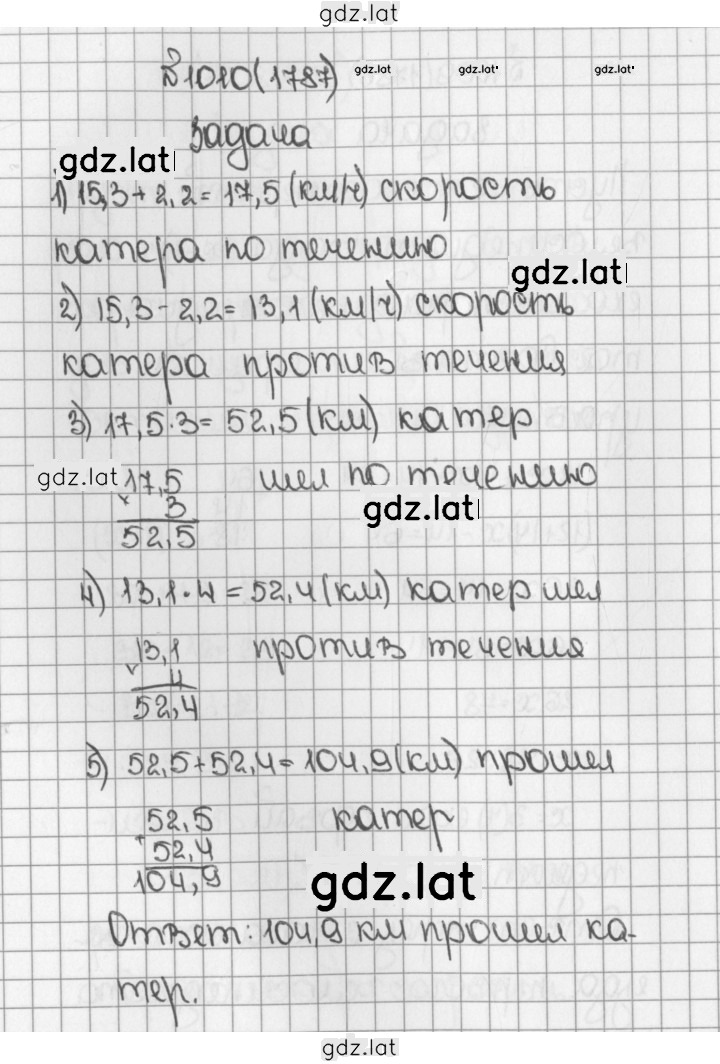 gdz.lat
№1010(1787)
gdz.lat gdz.lat gdz.lat
Задача
gdz.lat
1) 15,3 + 2,2 = 17,5 (км/ч) скорость
катера по течению
gdz.lat
2) 15,3 - 2,2 = 13,1 (км/ч) скорость
катера против течения
3) 17,5 · 3 = 52,5 (км) катер
gdz.lat
17,5 шел по течению
× 3
gdz.lat
52,5
4) 13,1 · 4 = 52,4 (км) катер шел
13,1 против течения
× 4
52,4
5) 52,5 + 52,4 = 104,9 (км) прошел
52,5 катер
+ 52,4
104,9
gdz.lat
Ответ: 104,9 км прошел ка-
тер.
gdz.lat